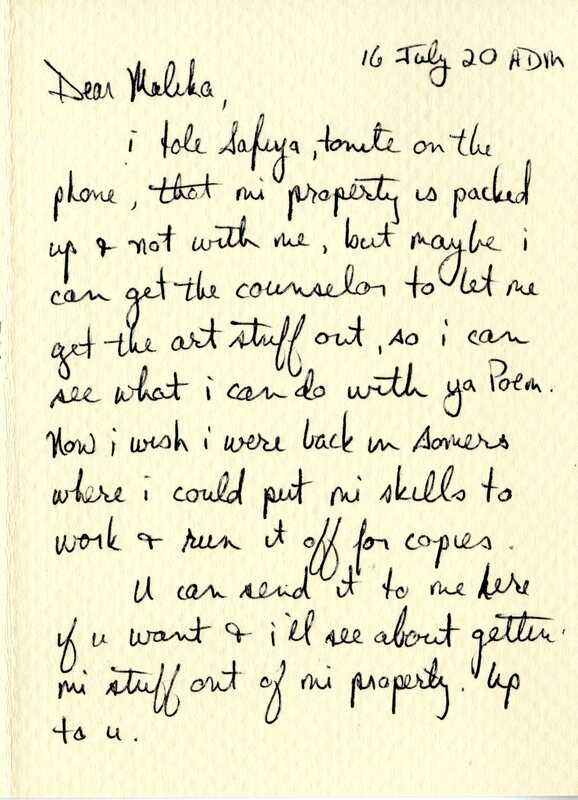 16 July 20 ADM
Dear Malika,
i tole Safiya, tonite on the
phone, that mi property is packed
up & not with me, but maybe i
can get the counselor to let me
get the art stuff out, so i can
see what i can do with ya Poem.
Now i wish i were back in Somers
where i could put mi skills to
work & run it off for copies.
U can send it to me here
if u want & i'll see about getten
mi stuff out of mi property. Up
to u.